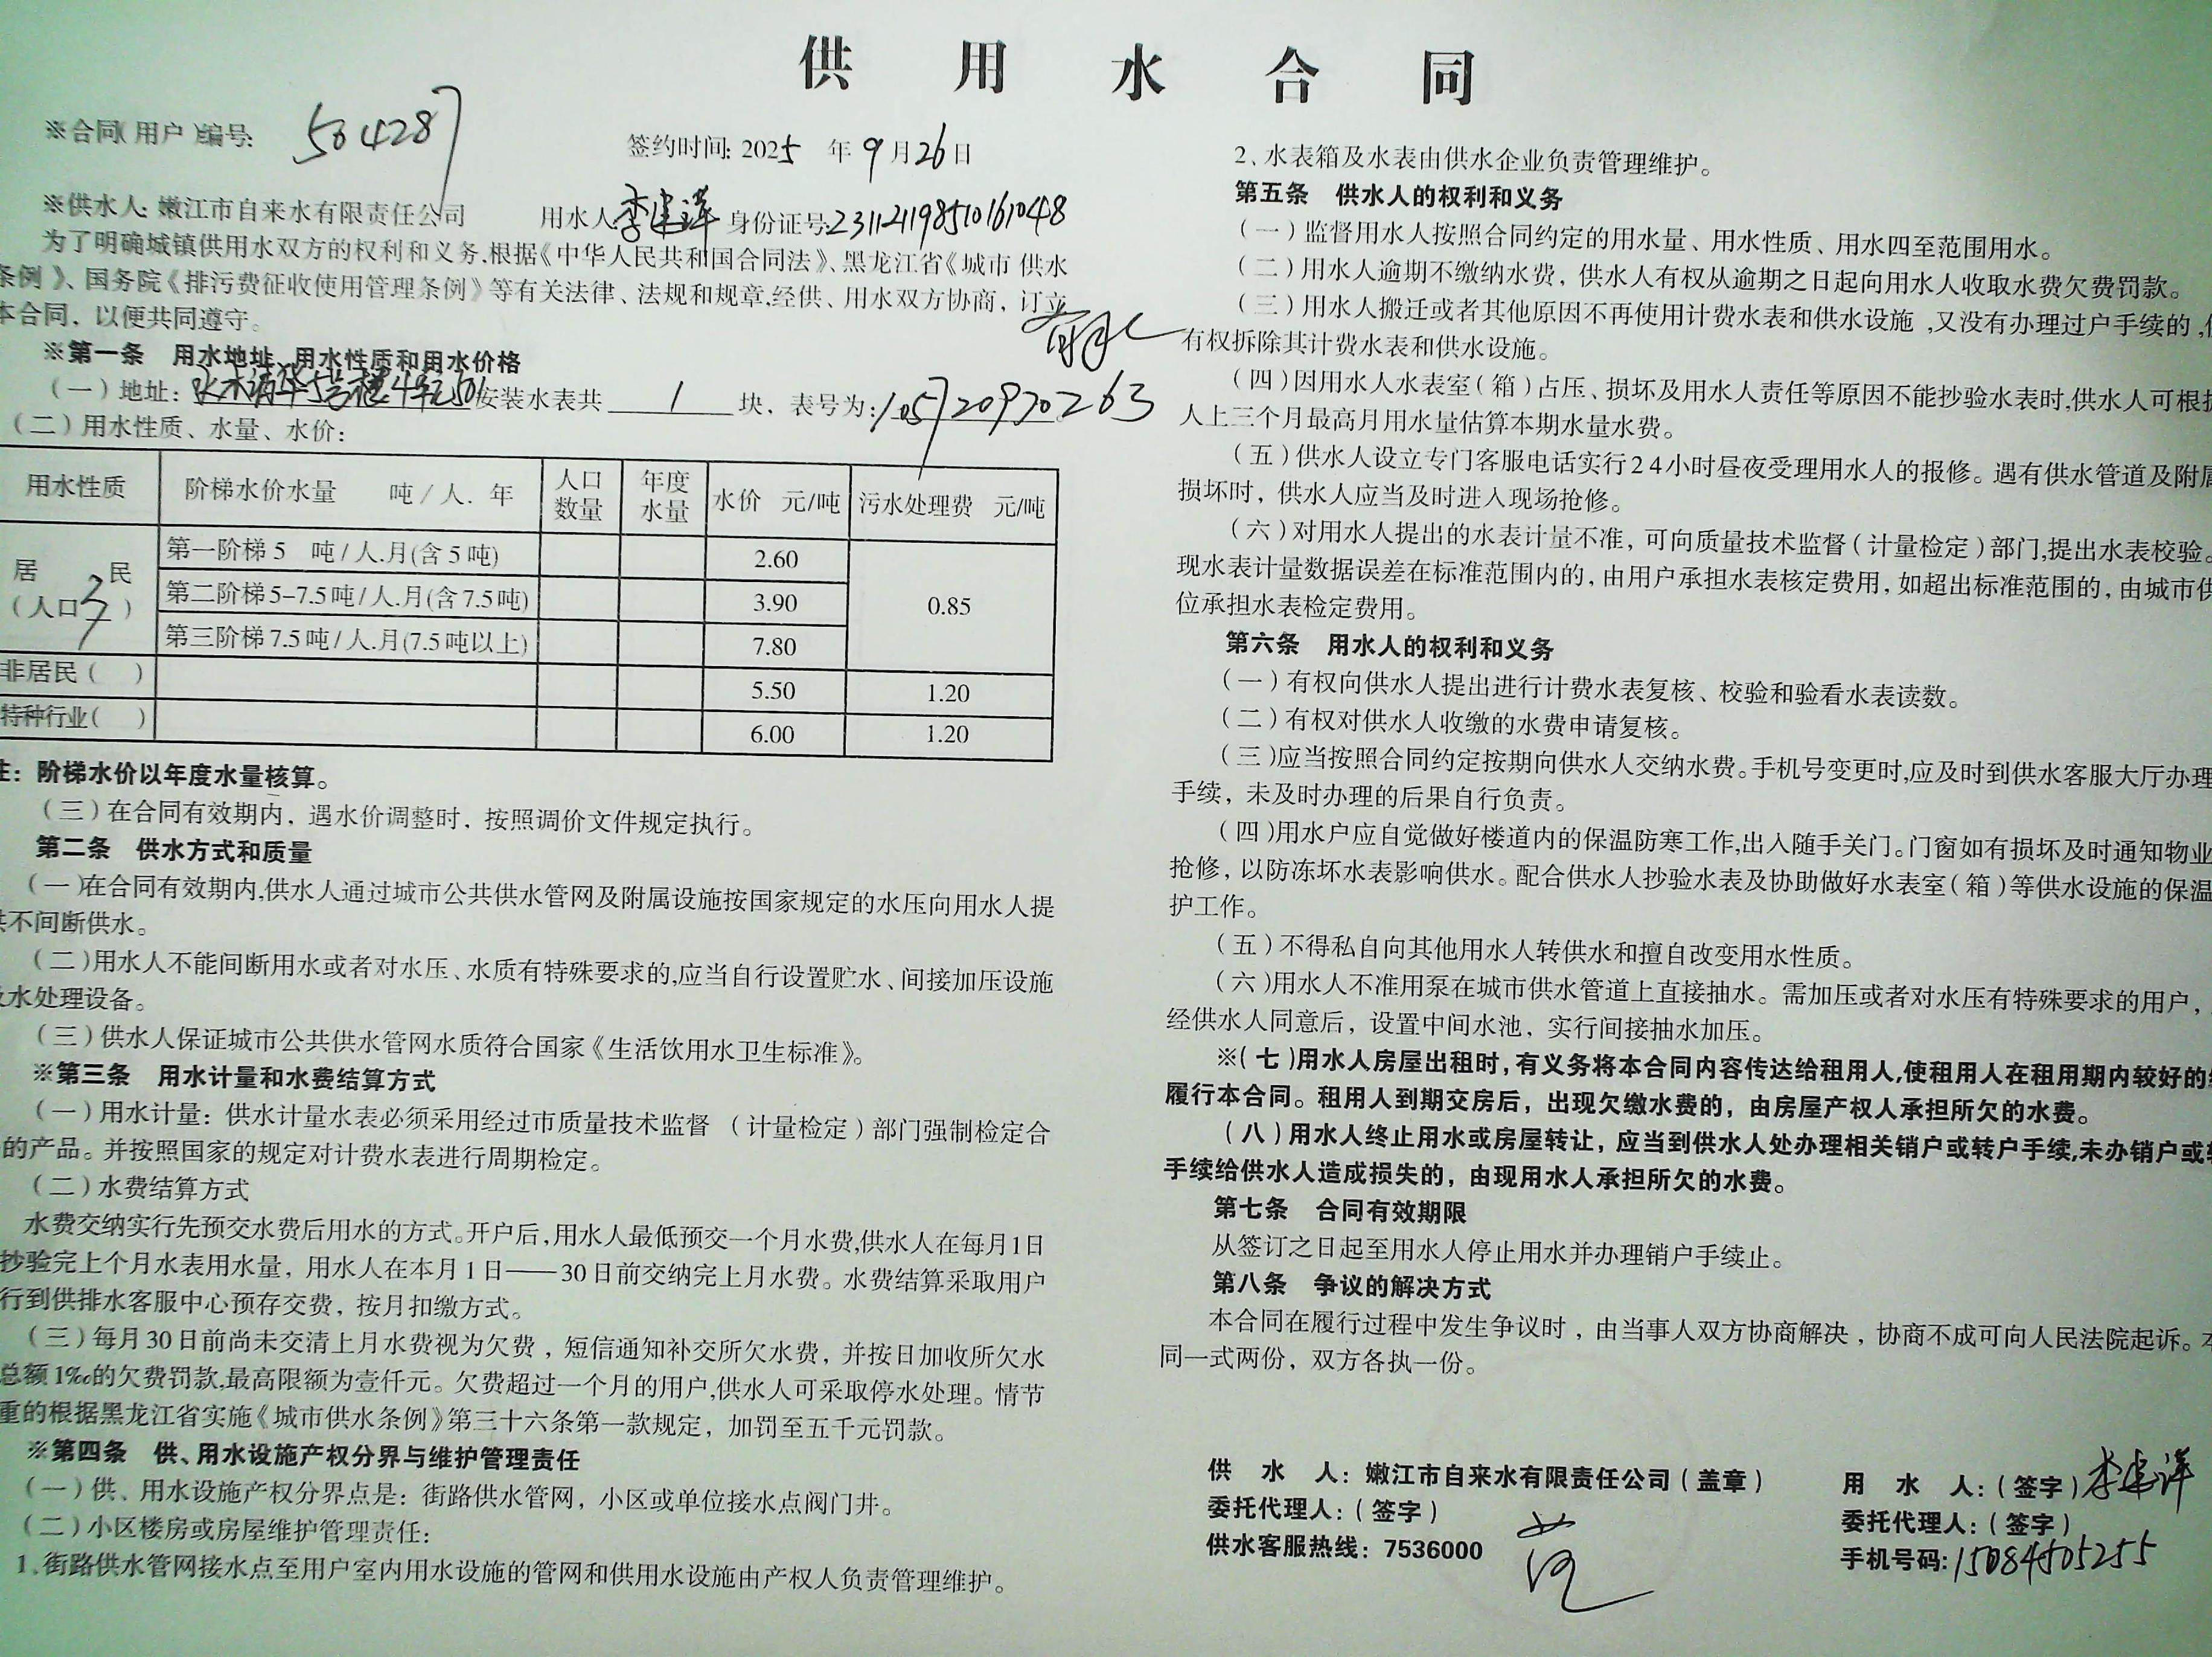 供用水合同
※合同(用户)编号: 504287
签约时间: 2025年9月26日
※供水人: 嫩江市自来水有限责任公司 用水人: 李建洋 身份证号: 231121198510161048
为了明确城镇供用水双方的权利和义务,根据《中华人民共和国合同法》、黑龙江省《城市供水
条例》、国务院《排污费征收使用管理条例》等有关法律、法规和规章,经供、用水双方协商，订立
本合同，以便共同遵守。
※第一条 用水地址、用水性质和用水价格
(一)地址: 水木清华5号楼4单元501 安装水表共 1 块，表号为: 105720970263
(二)用水性质、水量、水价:
用水性质 阶梯水价水量 吨/人.年 人口数量 年度水量 水价 元/吨 污水处理费 元/吨
居民(人口 ) 第一阶梯5 吨/人.月(含5吨) 2.60 0.85
第二阶梯5-7.5吨/人.月(含7.5吨) 3.90
第三阶梯7.5吨/人.月(7.5吨以上) 7.80
非居民( ) 5.50 1.20
特种行业( ) 6.00 1.20
注：阶梯水价以年度水量核算。
(三)在合同有效期内，遇水价调整时，按照调价文件规定执行。
第二条 供水方式和质量
(一)在合同有效期内,供水人通过城市公共供水管网及附属设施按国家规定的水压向用水人提
供不间断供水。
(二)用水人不能间断用水或者对水压、水质有特殊要求的,应当自行设置贮水、间接加压设施
及水处理设备。
(三)供水人保证城市公共供水管网水质符合国家《生活饮用水卫生标准》。
※第三条 用水计量和水费结算方式
(一)用水计量：供水计量水表必须采用经过市质量技术监督 (计量检定)部门强制检定合
的产品。并按照国家的规定对计费水表进行周期检定。
(二)水费结算方式
水费交纳实行先预交水费后用水的方式。开户后,用水人最低预交一个月水费,供水人在每月1日
抄验完上个月水表用水量，用水人在本月1日——30日前交纳完上月水费。水费结算采取用户
行到供排水客服中心预存交费，按月扣缴方式。
(三)每月30日前尚未交清上月水费视为欠费，短信通知补交所欠水费，并按日加收所欠水
总额1‰的欠费罚款,最高限额为壹仟元。欠费超过一个月的用户,供水人可采取停水处理。情节
重的根据黑龙江省实施《城市供水条例》第三十六条第一款规定，加罚至五千元罚款。
※第四条 供、用水设施产权分界与维护管理责任
(一)供、用水设施产权分界点是：街路供水管网，小区或单位接水点阀门井。
(二)小区楼房或房屋维护管理责任:
1、街路供水管网接水点至用户室内用水设施的管网和供用水设施由产权人负责管理维护。
2、水表箱及水表由供水企业负责管理维护。
第五条 供水人的权利和义务
(一)监督用水人按照合同约定的用水量、用水性质、用水四至范围用水。
(二)用水人逾期不缴纳水费，供水人有权从逾期之日起向用水人收取水费欠费罚款。
(三)用水人搬迁或者其他原因不再使用计费水表和供水设施,又没有办理过户手续的,供
有权拆除其计费水表和供水设施。
(四)因用水人水表室(箱)占压、损坏及用水人责任等原因不能抄验水表时,供水人可根据
人上三个月最高月用水量估算本期水量水费。
(五)供水人设立专门客服电话实行24小时昼夜受理用水人的报修。遇有供水管道及附属
损坏时，供水人应当及时进入现场抢修。
(六)对用水人提出的水表计量不准，可向质量技术监督(计量检定)部门,提出水表校验。
现水表计量数据误差在标准范围内的，由用户承担水表核定费用，如超出标准范围的，由城市供
位承担水表检定费用。
第六条 用水人的权利和义务
(一)有权向供水人提出进行计费水表复核、校验和验看水表读数。
(二)有权对供水人收缴的水费申请复核。
(三)应当按照合同约定按期向供水人交纳水费。手机号变更时,应及时到供水客服大厅办理
手续，未及时办理的后果自行负责。
(四)用水户应自觉做好楼道内的保温防寒工作,出入随手关门。门窗如有损坏及时通知物业
抢修，以防冻坏水表影响供水。配合供水人抄验水表及协助做好水表室(箱)等供水设施的保温
护工作。
(五)不得私自向其他用水人转供水和擅自改变用水性质。
(六)用水人不准用泵在城市供水管道上直接抽水。需加压或者对水压有特殊要求的用户，
经供水人同意后，设置中间水池，实行间接抽水加压。
※(七)用水人房屋出租时，有义务将本合同内容传达给租用人,使租用人在租用期内较好的
履行本合同。租用人到期交房后，出现欠缴水费的，由房屋产权人承担所欠的水费。
(八)用水人终止用水或房屋转让，应当到供水人处办理相关销户或转户手续,未办销户或转
手续给供水人造成损失的，由现用水人承担所欠的水费。
第七条 合同有效期限
从签订之日起至用水人停止用水并办理销户手续止。
第八条 争议的解决方式
本合同在履行过程中发生争议时，由当事人双方协商解决，协商不成可向人民法院起诉。本
同一式两份，双方各执一份。
供水人：嫩江市自来水有限责任公司(盖章) 用水人：(签字) 李建洋
委托代理人：(签字) 委托代理人：(签字)
供水客服热线：7536000 手机号码: 15084505255